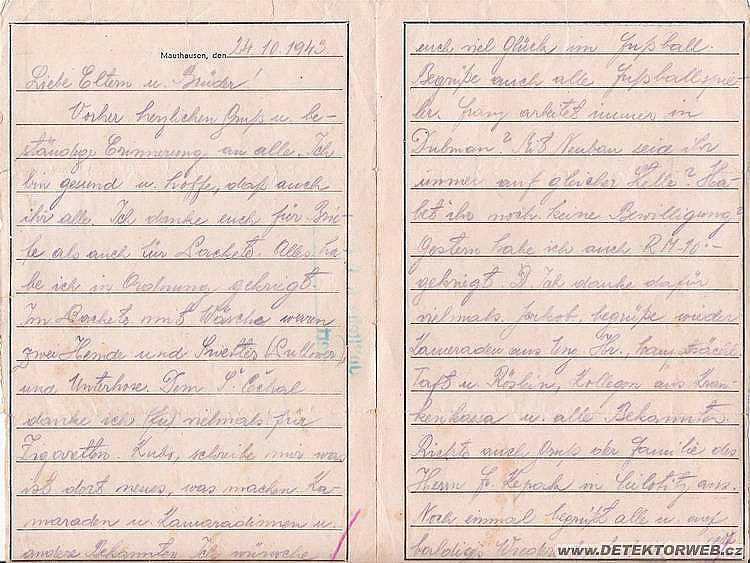 Mauthausen, den 24.10.1943.
Liebe Eltern u. Brüder!
Vorher herzlichen Gruß u. be-
ständige Erinnerung an alle. Ich
bin gesund u. hoffe, daß auch
ihr alle. Ich danke euch für Brie-
fe als auch für Packete. Alles ha-
be ich in Ordnung gekriegt.
Im Packete mit Wäsche waren
zwei Hemde und Sweter (Pullwer)
und Unterhose. Dem
danke ich vielmals für
Zigaretten. Kubo, schreibe mir was
ist dort neues, was machen Ka-
maraden u. Kamaradinnen u.
andere Bekannten. Ich wünsche
euch viel Glück im Fußball.
Begrüße auch alle Fußballspie-
ler. Franz arbeitet immer in
Mit Neubau seid ihr
immer auf gleicher Stelle? Ha-
bet ihr noch keine Bewilligung?
Gestern habe ich auch RM 10.-
gekriegt. Ich danke dafür
vielmals. Jakob, begrüße wieder
Kameraden aus
Taft u. Röslin, Kollegen aus Kran-
kenkassa u. alle Bekannten.
Richte auch Gruß der Familie des
Herrn in aus.
Noch einmal begrüßt alle u. auf
baldiges
www.DETEKTORWEB.cz